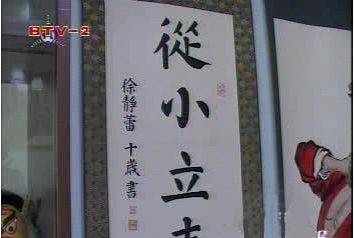 BTV-2
從小立志
徐靜蕾 十歲書